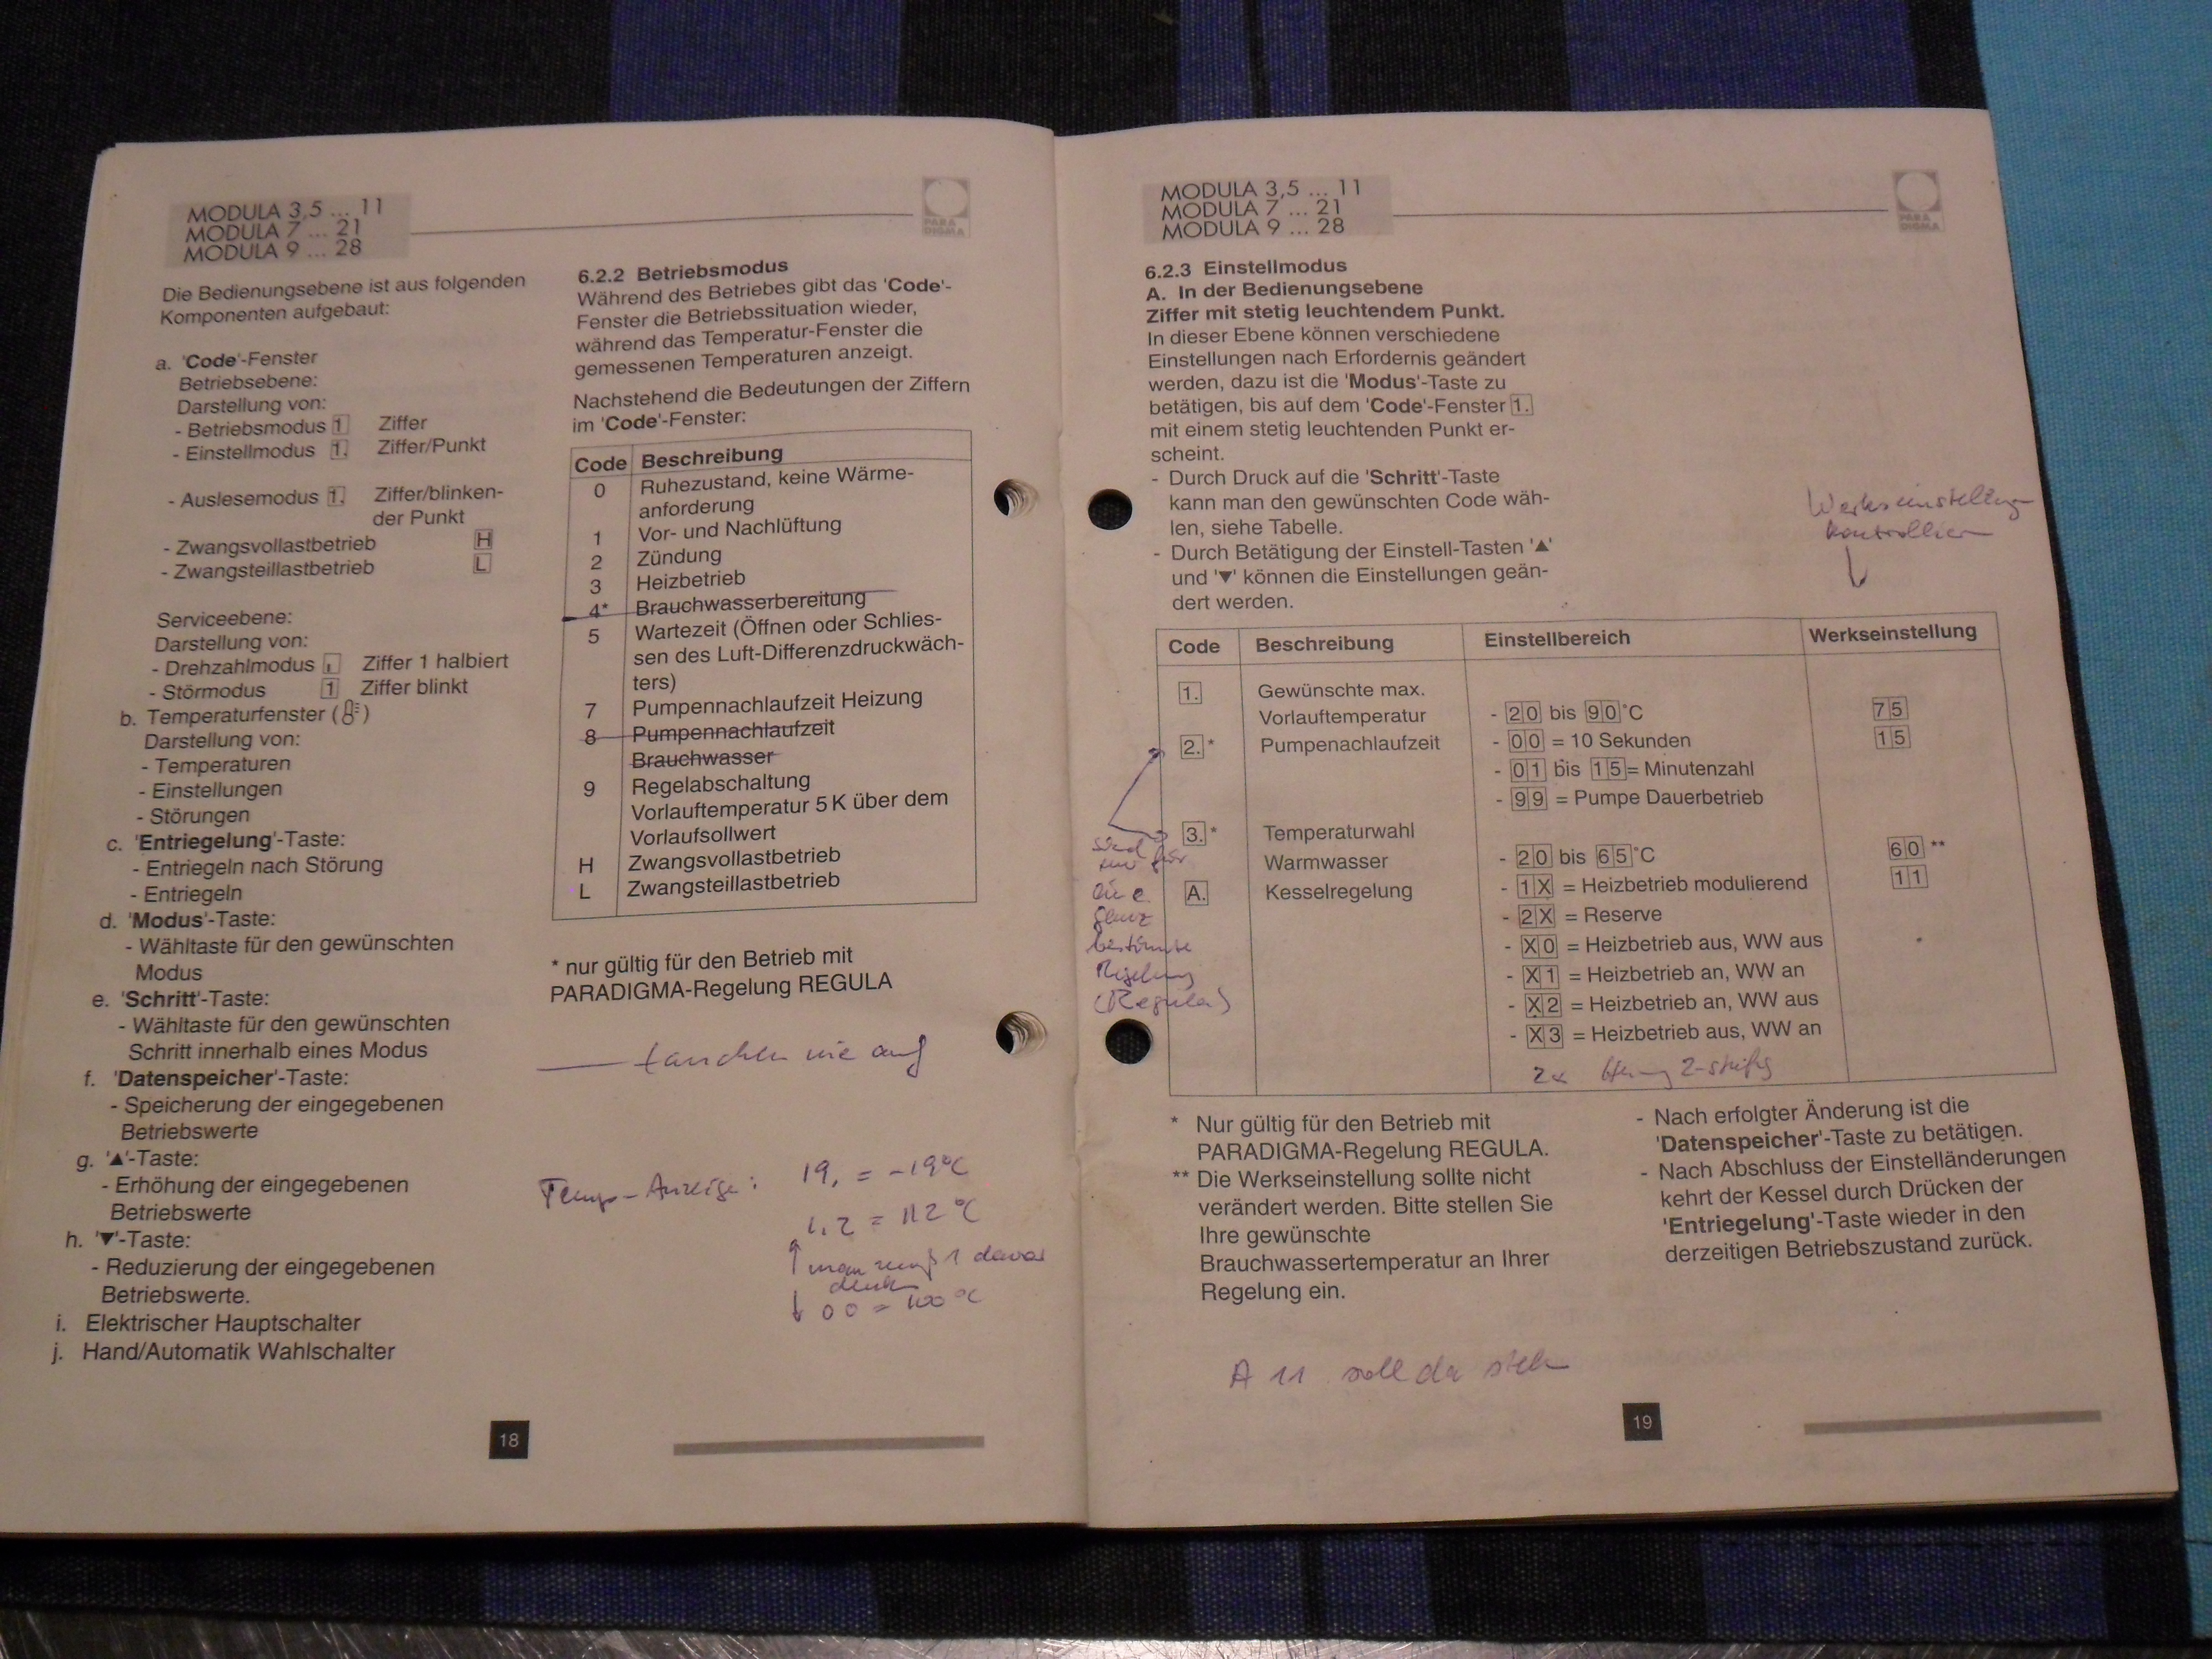 MODULA 3,5 ... 11
MODULA 7 ... 21
MODULA 9 ... 28
PARA
DIGMA
Die Bedienungsebene ist aus folgenden
Komponenten aufgebaut:
a. 'Code'-Fenster
Betriebsebene:
Darstellung von:
- Betriebsmodus 1 Ziffer
- Einstellmodus 1. Ziffer/Punkt
- Auslesemodus 1. Ziffer/blinken-
der Punkt
- Zwangsvollastbetrieb H
- Zwangsteillastbetrieb L
Serviceebene:
Darstellung von:
- Drehzahlmodus Ziffer 1 halbiert
- Störmodus 1 Ziffer blinkt
b. Temperaturfenster ( )
Darstellung von:
- Temperaturen
- Einstellungen
- Störungen
c. 'Entriegelung'-Taste:
- Entriegeln nach Störung
- Entriegeln
d. 'Modus'-Taste:
- Wähltaste für den gewünschten
Modus
e. 'Schritt'-Taste:
- Wähltaste für den gewünschten
Schritt innerhalb eines Modus
f. 'Datenspeicher'-Taste:
- Speicherung der eingegebenen
Betriebswerte
g. '▲'-Taste:
- Erhöhung der eingegebenen
Betriebswerte
h. '▼'-Taste:
- Reduzierung der eingegebenen
Betriebswerte.
i. Elektrischer Hauptschalter
j. Hand/Automatik Wahlschalter
6.2.2 Betriebsmodus
Während des Betriebes gibt das 'Code'-
Fenster die Betriebssituation wieder,
während das Temperatur-Fenster die
gemessenen Temperaturen anzeigt.
Nachstehend die Bedeutungen der Ziffern
im 'Code'-Fenster:
Code Beschreibung
0 Ruhezustand, keine Wärme-
anforderung
1 Vor- und Nachlüftung
2 Zündung
3 Heizbetrieb
4* Brauchwasserbereitung
5 Wartezeit (Öffnen oder Schlies-
sen des Luft-Differenzdruckwäch-
ters)
7 Pumpennachlaufzeit Heizung
8 Pumpennachlaufzeit
Brauchwasser
9 Regelabschaltung
Vorlauftemperatur 5 K über dem
Vorlaufsollwert
H Zwangsvollastbetrieb
L Zwangsteillastbetrieb
* nur gültig für den Betrieb mit
PARADIGMA-Regelung REGULA
tauchen nie auf
Temp-Anzeige: 19. = -19°C
1.2 = 112 °C
man muß 1 davor
denken
00 = 100 °C
18
MODULA 3,5 ... 11
MODULA 7 ... 21
MODULA 9 ... 28
PARA
DIGMA
6.2.3 Einstellmodus
A. In der Bedienungsebene
Ziffer mit stetig leuchtendem Punkt.
In dieser Ebene können verschiedene
Einstellungen nach Erfordernis geändert
werden, dazu ist die 'Modus'-Taste zu
betätigen, bis auf dem 'Code'-Fenster 1.
mit einem stetig leuchtenden Punkt er-
scheint.
- Durch Druck auf die 'Schritt'-Taste
kann man den gewünschten Code wäh-
len, siehe Tabelle.
- Durch Betätigung der Einstell-Tasten '▲'
und '▼' können die Einstellungen geän-
dert werden.
Werkseinstellung
kontrollieren
Code Beschreibung Einstellbereich Werkseinstellung
1. Gewünschte max.
Vorlauftemperatur - 20 bis 90°C 75
2.* Pumpenachlaufzeit - 00 = 10 Sekunden 15
- 01 bis 15 = Minutenzahl
- 99 = Pumpe Dauerbetrieb
3.* Temperaturwahl
Warmwasser - 20 bis 65°C 60 **
A. Kesselregelung - 1X = Heizbetrieb modulierend 11
- 2X = Reserve
- X0 = Heizbetrieb aus, WW aus
- X1 = Heizbetrieb an, WW an
- X2 = Heizbetrieb an, WW aus
- X3 = Heizbetrieb aus, WW an
2x 2-stufig
sind
nur für
eine
ganz
bestimmte
Regelung
(Regula)
* Nur gültig für den Betrieb mit
PARADIGMA-Regelung REGULA.
** Die Werkseinstellung sollte nicht
verändert werden. Bitte stellen Sie
Ihre gewünschte
Brauchwassertemperatur an Ihrer
Regelung ein.
- Nach erfolgter Änderung ist die
'Datenspeicher'-Taste zu betätigen.
- Nach Abschluss der Einstelländerungen
kehrt der Kessel durch Drücken der
'Entriegelung'-Taste wieder in den
derzeitigen Betriebszustand zurück.
A 11 soll da stehn
19